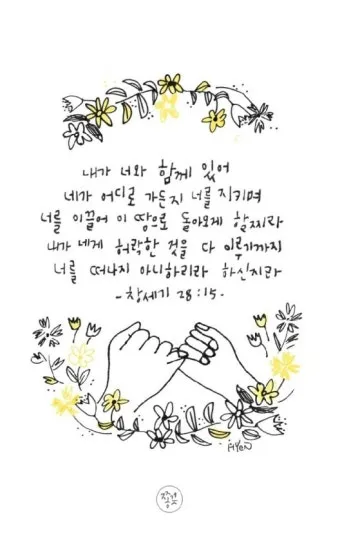 내가 너와 함께 있어
네가 어디로 가든지 너를 지키며
너를 이끌어 이 땅으로 돌아오게 할찌라
내가 네게 허락한 것을 다 이루기까지
너를 떠나지 아니하리라 하신지라
-창세기 28:15-